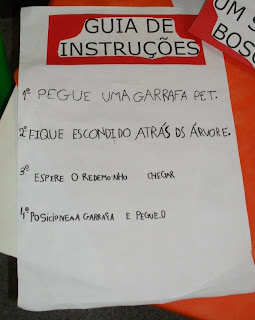 GUIA DE
INSTRUÇÕES
1º PEGUE UMA GARRAFA PET.
2º FIQUE ESCONDIDO ATRÁS DS ÁRVORE.
3º ESPERE O REDEMOINHO CHEGAR
4º POSICIONE A GARRAFA E PEGUE.O
UM S
BOSQ